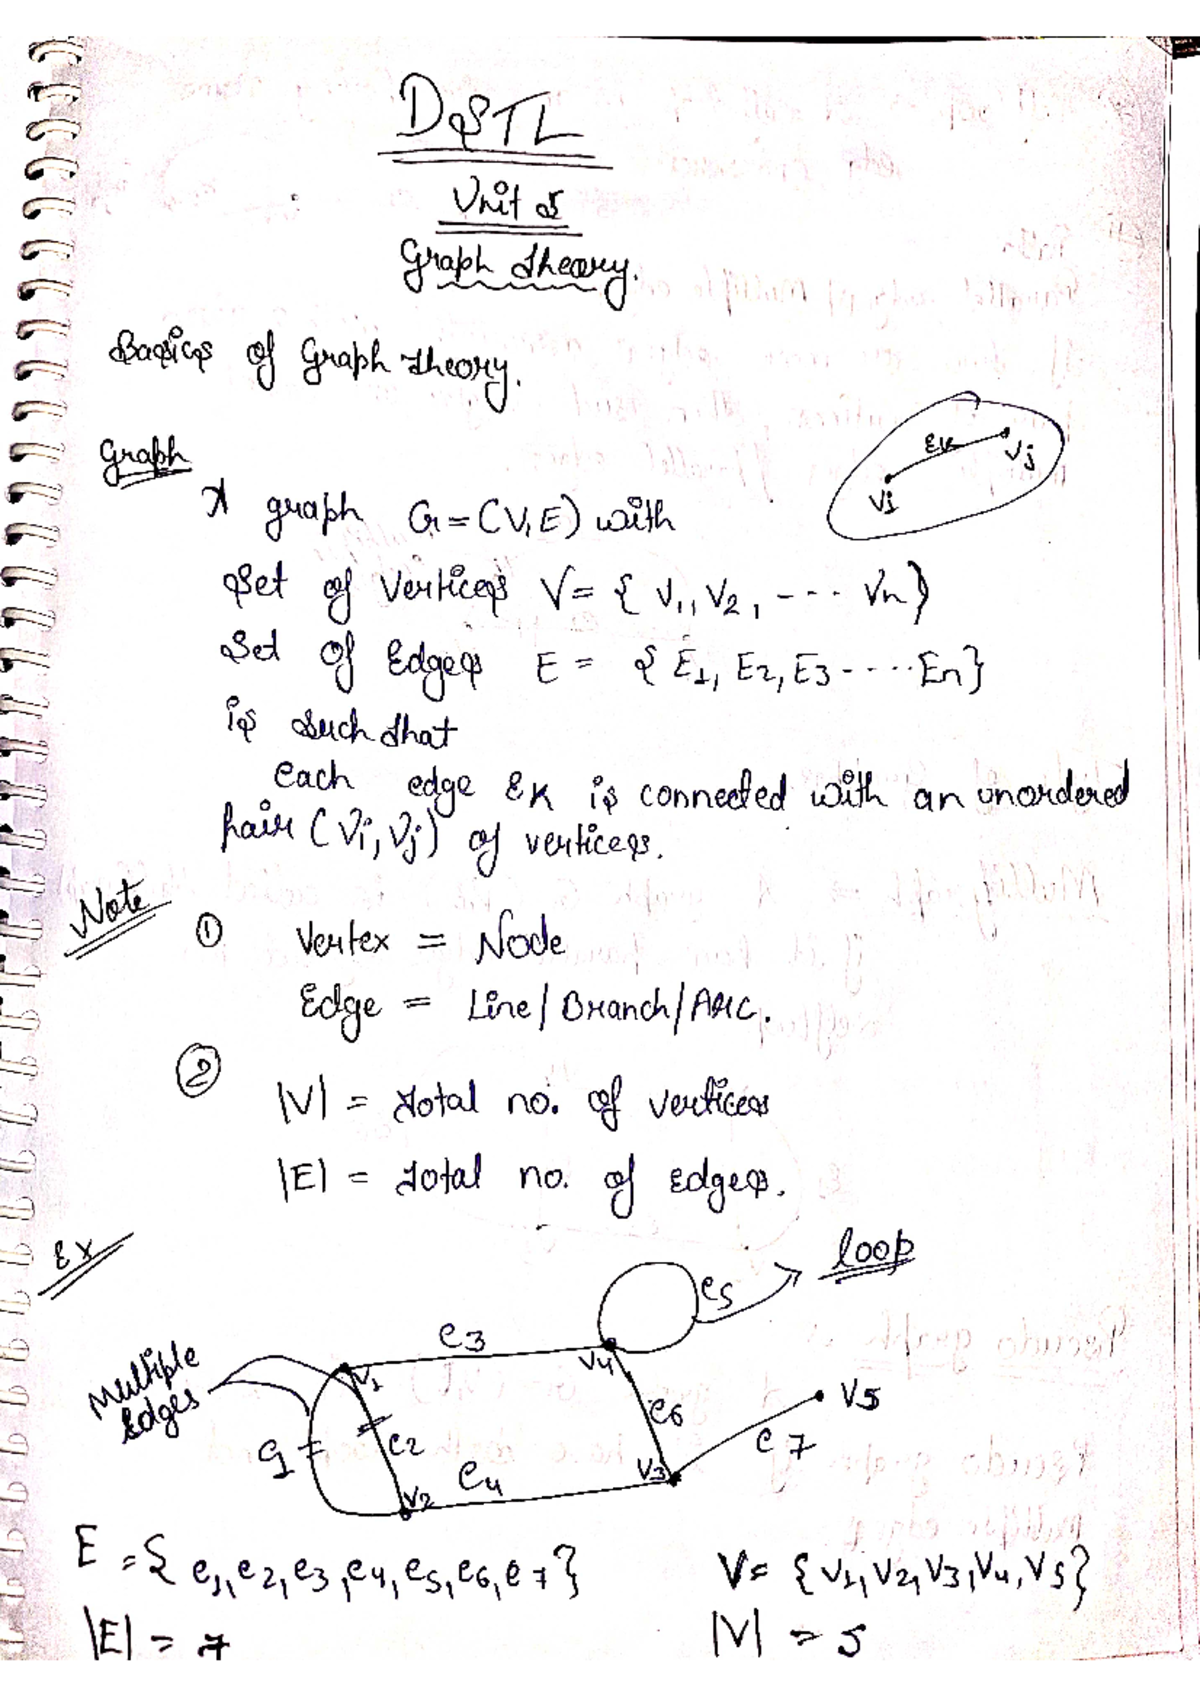 DSTL
Unit 5
Graph Theory.
Basics of Graph Theory.
Graph
A graph G=(V,E) with
Set of Vertices V= { V1, V2, ---- Vn}
Set of Edges E = {E1, E2, E3 ----En}
is such that
each edge EK is connected with an unordered
pair (Vi, Vj) of vertices.
EK
Vi
Vj
Note
① Vertex = Node
Edge = Line/Branch/Arc.
② |V| = Total no. of vertices
|E| = Total no. of edges.
Ex
loop
e5
e3
V1
V4
Multiple
Edges
e1
e2
e6
V5
e7
e4
V3
V2
E = { e1, e2, e3, e4, e5, e6, e7}
V= {V1, V2, V3, V4, V5}
|E| = 7
|V| = 5